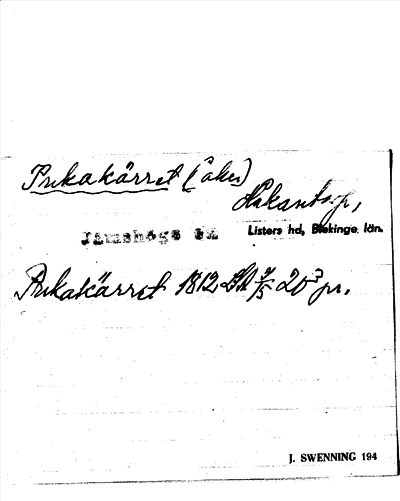 Prikakärret (åker)
Hakantorp,
Jämshögs sn
Listers hd, Blekinge län.
Prikakärret 1812 LSA 20 pr.
J. SWENNING 194